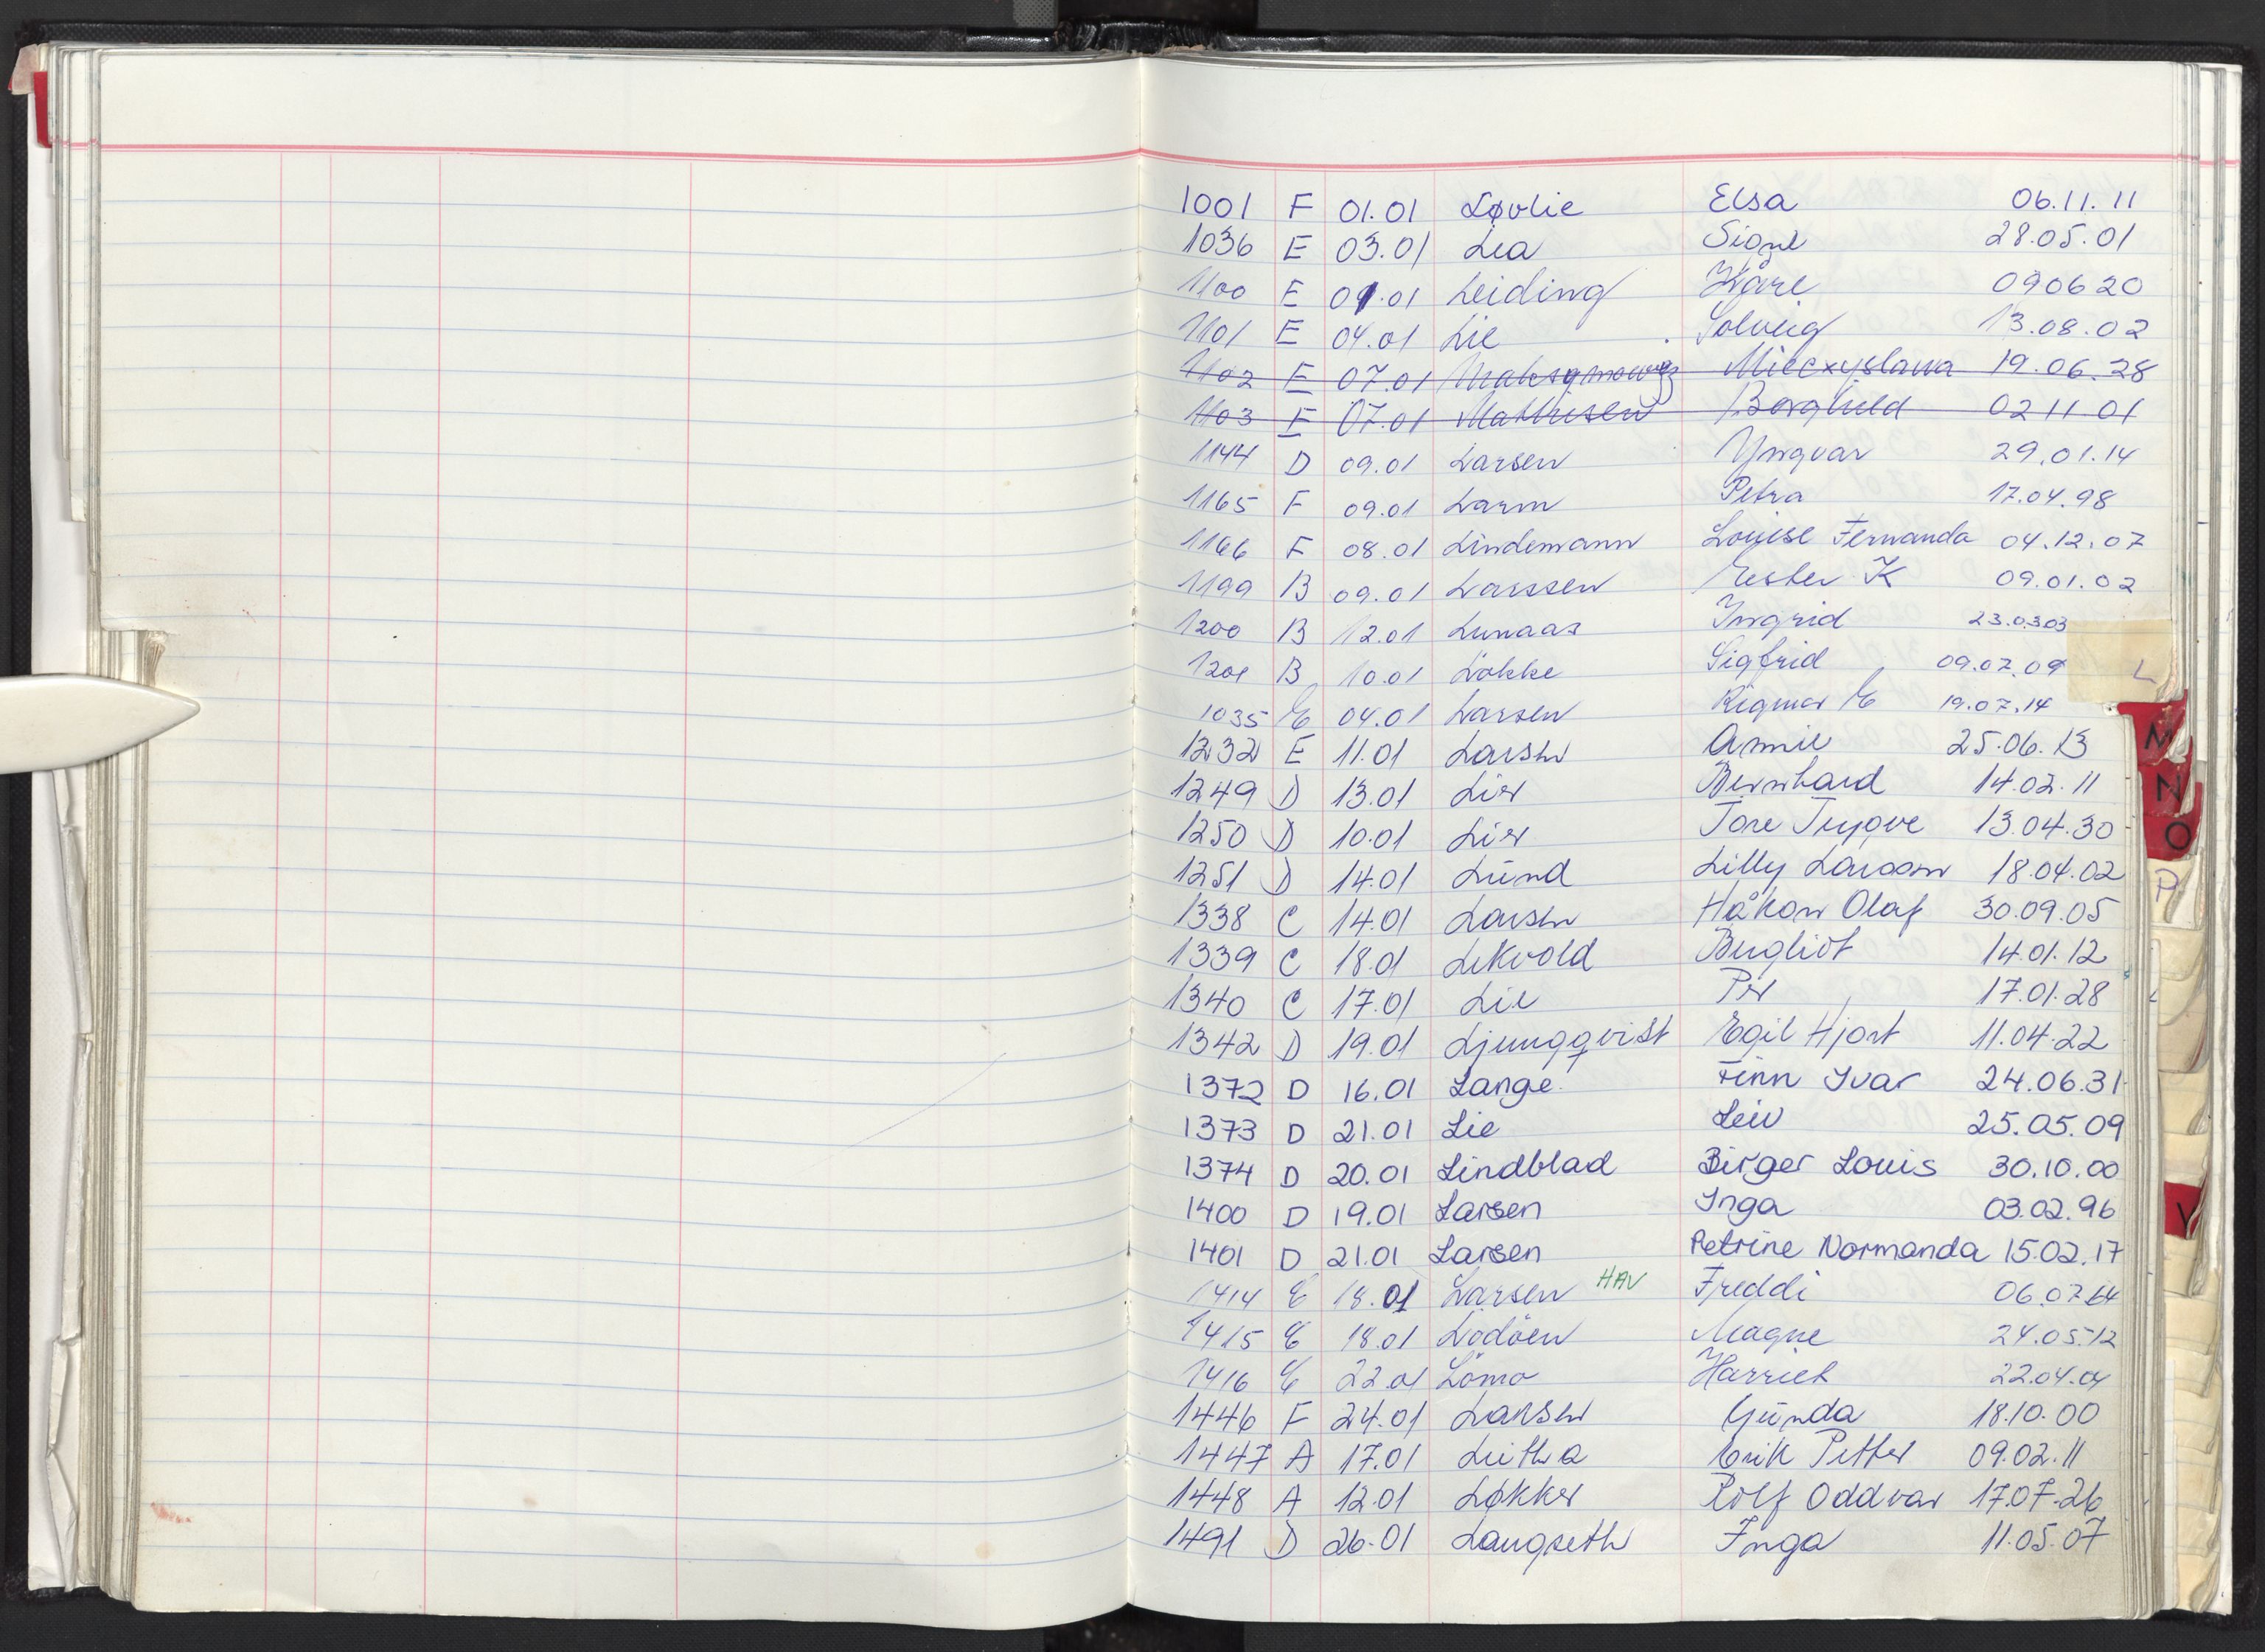 1001 F 01.01 Løvlie Elsa 06.11.11
1036 E 03.01 Lea Signe 28.05.01
1100 E 01.01 Leiding Kåre 090620
1101 E 04.01 Lie Solveig 13.08.02
1102 E 07.01 Maksymowicz Miecxyslawa 19.06.28
1103 F 07.01 Mathisen Borghild 02 11 01
1144 D 09.01 Larsen Yngvar 29.01.14
1165 F 09.01 Larm Petra 17.04.98
1166 F 08.01 Lindemann Louise Fernanda 04.12.07
1199 B 09.01 Larssen Ester K 09.01.02
1200 B 12.01 Lunaas Ingrid 23.0303
1201 B 10.01 Løkke Sigfrid 09.07.09
L
1035 E 04.01 Larsen Rigmor E 19.07.14
1232 E 11.01 Larsen Annie 25.06.13
M
1249 D 13.01 Lier Bernhard 14.02.11
N
1250 D 10.01 Lier Tore Trygve 13.04.30
O
1251 D 14.01 Lund Lilly Larssen 18.04.02
P
1338 C 14.01 Larsen Håkon Olaf 30.09.05
1339 C 18.01 Lekvold Bergliot 14.01.12
1340 C 17.01 Lie Per 17.01.28
1342 D 19.01 Ljungqvist Egil Hjort 11.04.22
1372 D 16.01 Lange Finn Ivar 24.06.31
1373 D 21.01 Lie Leiv 25.05.09
1374 D 20.01 Lindblad Birger Louis 30.10.00
1400 D 19.01 Larsen Inga 03.02.96
1401 D 21.01 Larsen Petrine Normanda 15.02.17
1414 E 18.01 Larsen HAV Freddi 06.07.14
1415 E 18.01 Lødøen Magne 24.05.12
1416 E 22.01 Lømo Harriet 22.04.04
1446 F 24.01 Larsen Gunda 18.10.00
1447 A 17.01 Erik Petter 09.02.11
1448 A 12.01 Løkker Rolf Oddvar 17.07.26
1491 D 26.01 Langseth Inga 11.05.07